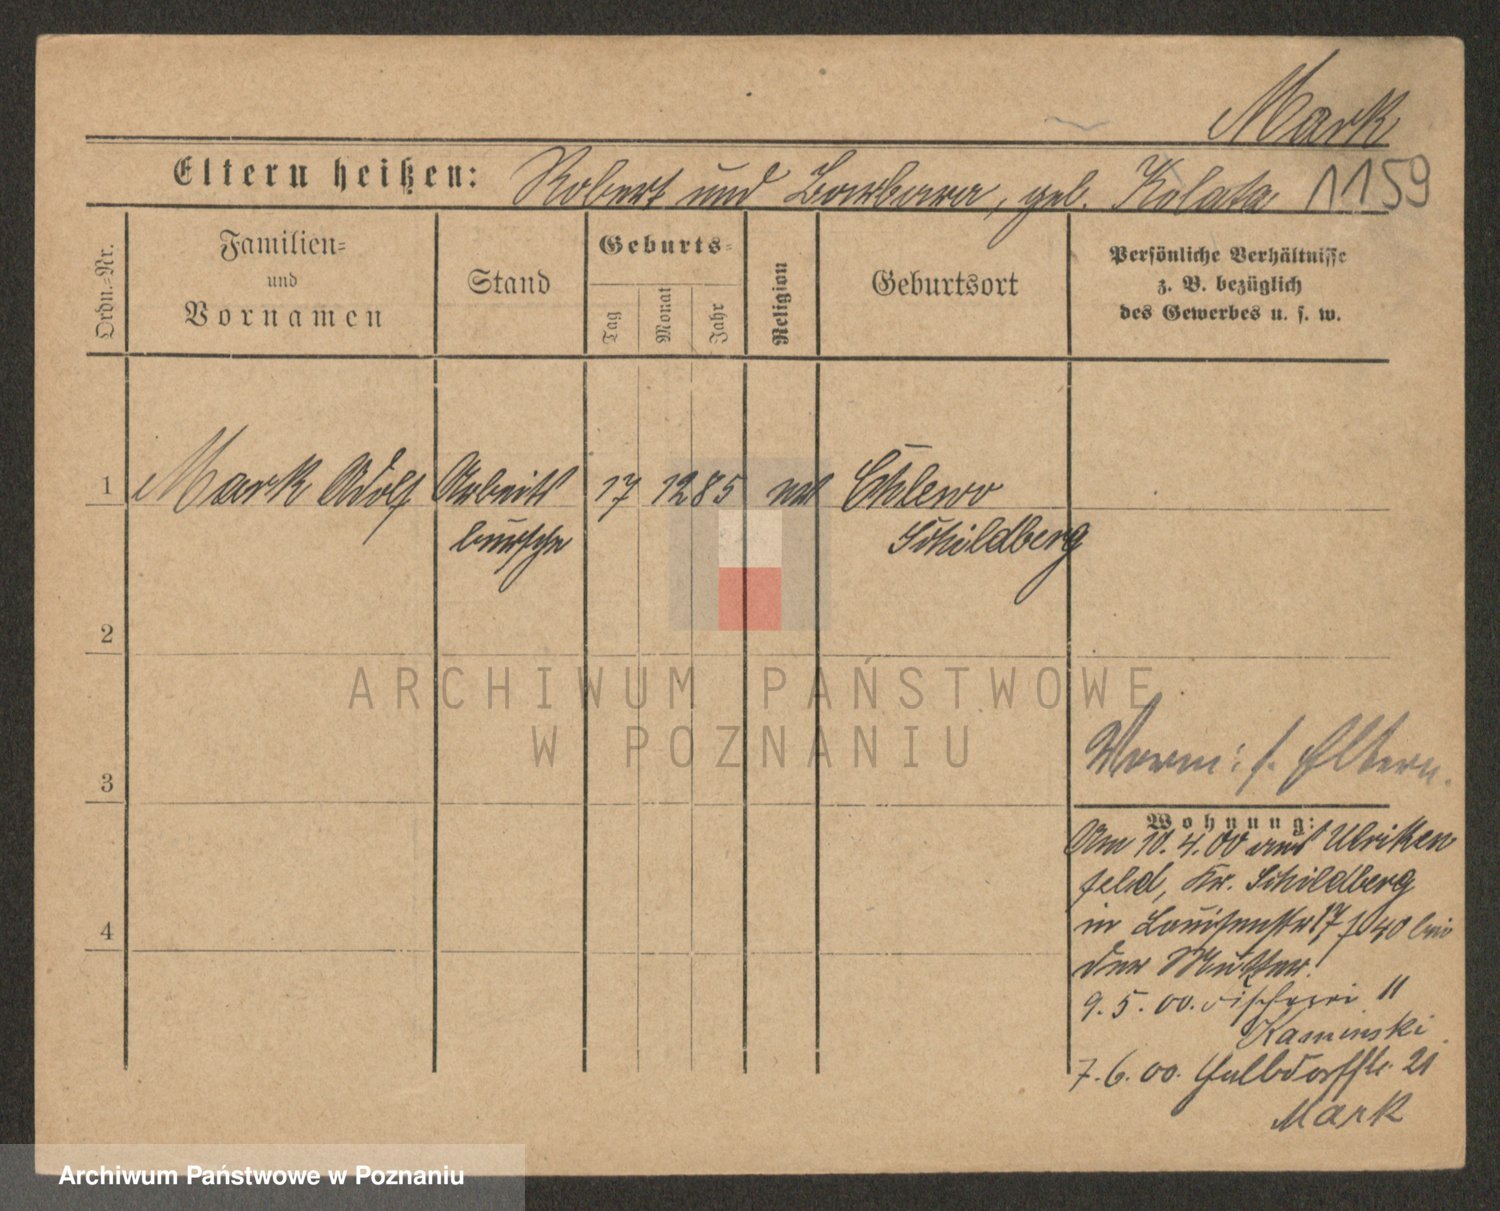 Mark
Eltern heißen: Robert und Barbara, geb. Kolata 1159
Ordn.=Nr.
Familien=
und
Vornamen
Stand
Geburts=
Tag
Monat
Jahr
Religion
Geburtsort
Persönliche Verhältnisse
z. B. bezüglich
des Gewerbes u. s. w.
1 Mark Adolf Arbeits 17 12 85 Chlewo
bursche Schildberg
2
ARCHIWUM PAŃSTWOWE
W POZNANIU
3
Vorm: s. Eltern.
Wohnung:
Am 10.4.00 aus Ulriken
feld, Kr. Schildberg
in Louisenstr 17 bei
4
der Mutter.
9.5.00. Fischerei 11
Kaminski
7.6.00. Halbdorfstr. 21
Mark
Archiwum Państwowe w Poznaniu